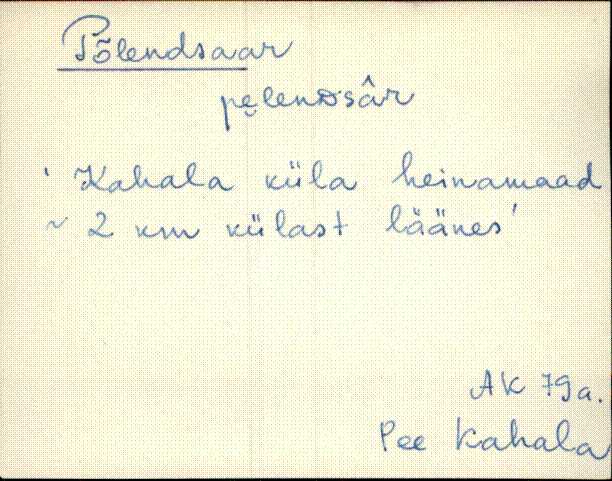 Põlendsaar
pe̮lenᴅsâr
' Kahala küla heinamaad
~ 2 km külast läänes'
AK 79a.
Pee Kahala